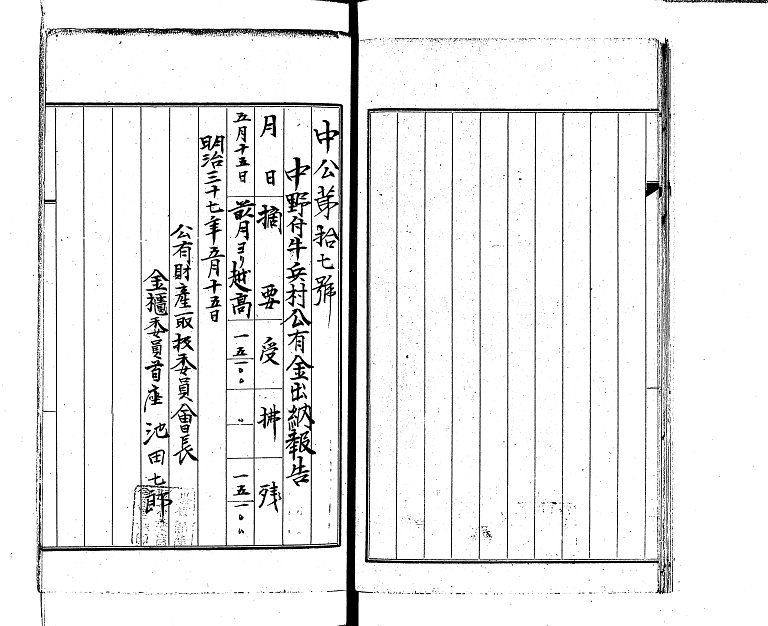 中公第拾七號
中野付牛兵村公有金出納報告
月日 摘要 受 拂 残
五月十五日 前月ヨリ越高 一五一〇〇 〇 一五一〇〇
明治三十七年五月十五日
公有財産取扱委員會長
金櫃委員首座 池田七郎